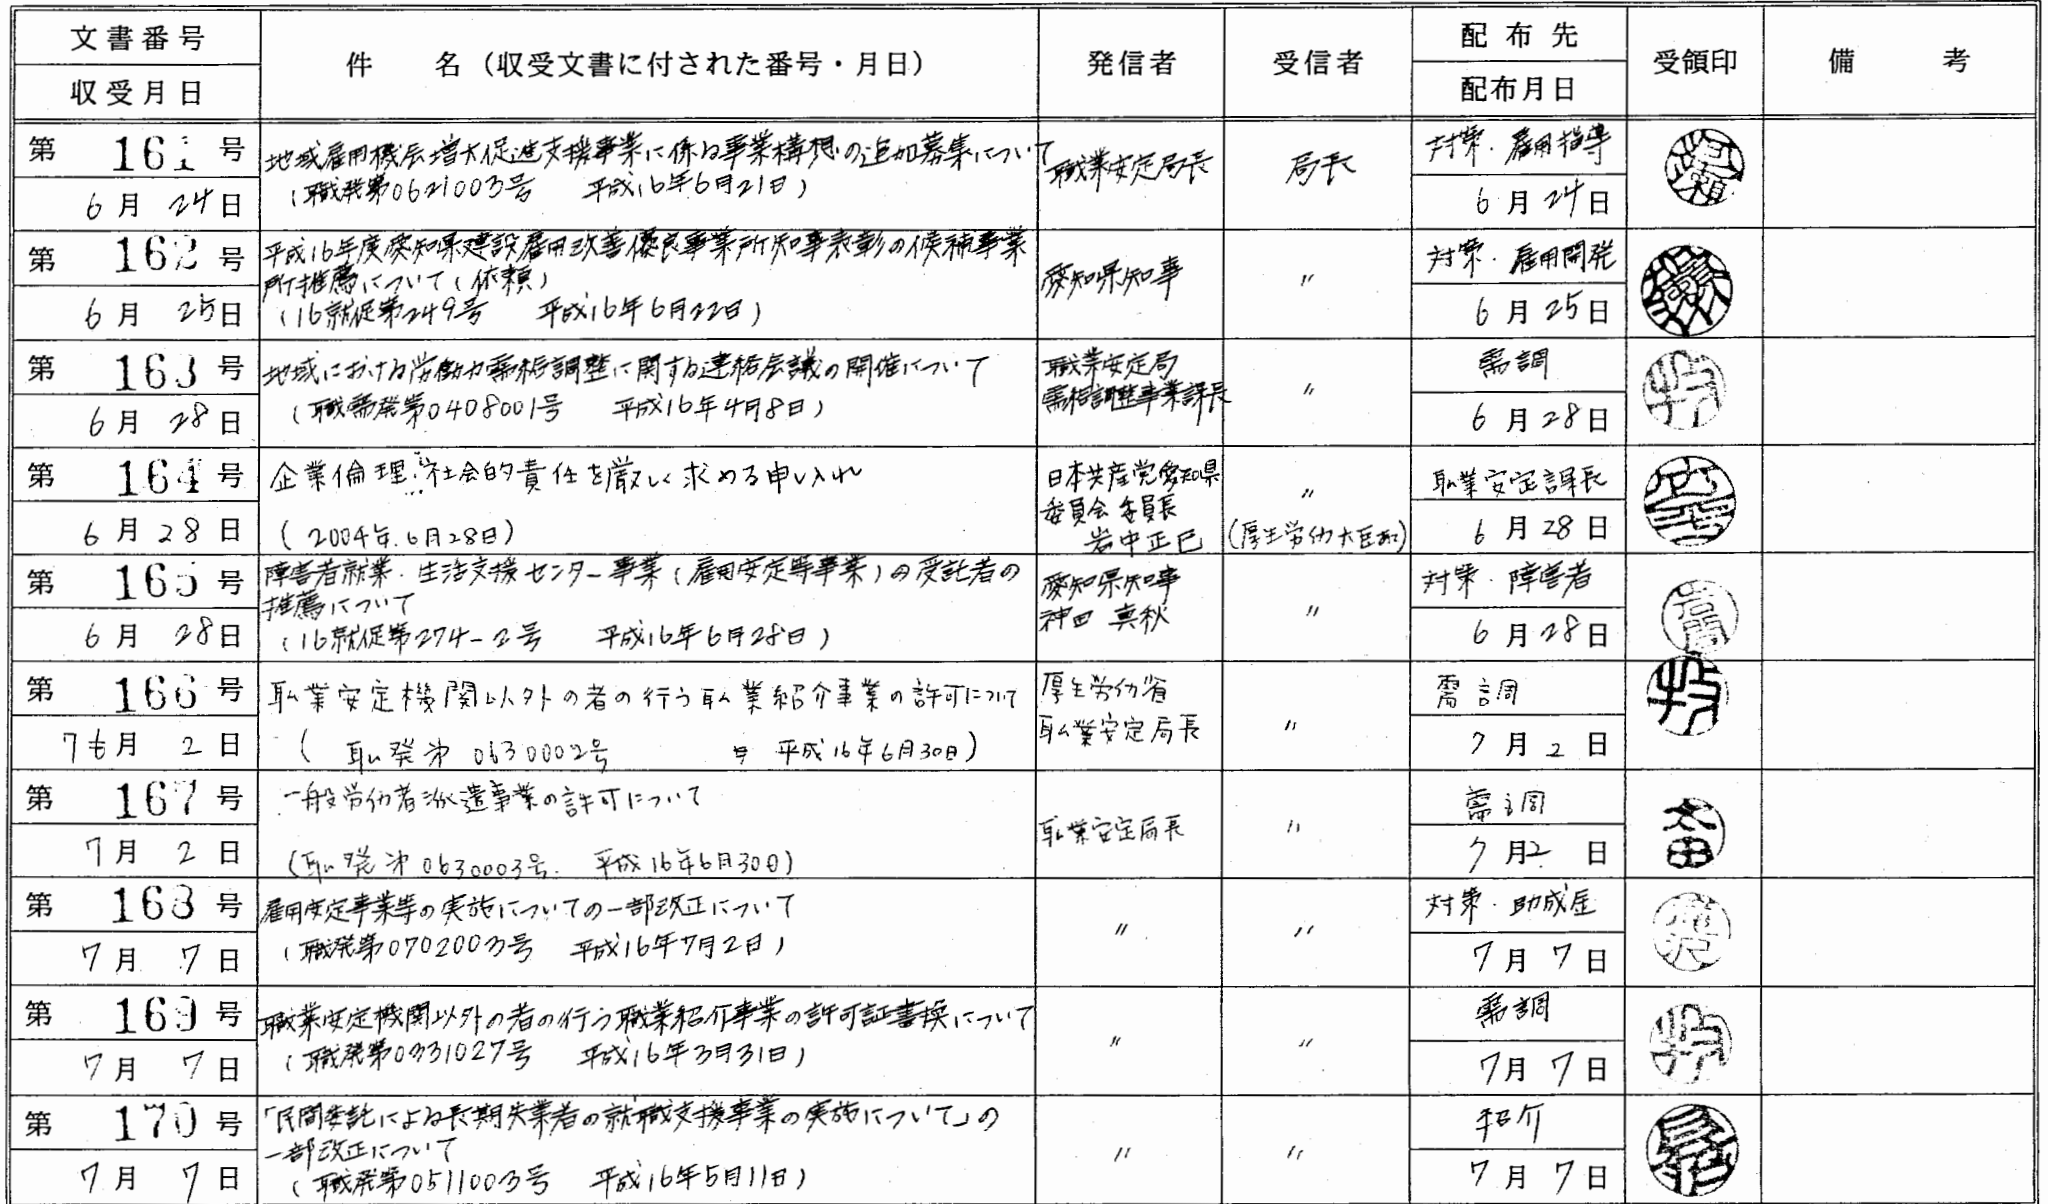 文書番号
収受月日
件 名（収受文書に付された番号・月日）
発信者
受信者
配布先
配布月日
受領印
備 考
第 161 号
6月 24日
地域雇用機会増大促進支援事業に係る事業構想の追加募集について
（職発第0621003号 平成16年6月21日）
職業安定局長
局長
対策・雇用指導
6月24日
第 162 号
6月 25日
平成16年度愛知県建設雇用改善優良事業所知事表彰の候補事業
所推薦について（依頼）
（16就促第249号 平成16年6月22日）
愛知県知事
〃
対策・雇用開発
6月25日
第 163 号
6月 28日
地域における労働力需給調整に関する連絡会議の開催について
（職需発第0408001号 平成16年4月8日）
職業安定局
需給調整事業課長
〃
需調
6月28日
第 164 号
6月28日
企業倫理・社会的責任を厳しく求める申し入れ
（2004年.6月28日）
日本共産党愛知県
委員会 委員長
岩中正巳
〃
（厚生労仂大臣あて）
职業安定課長
6月28日
第 165 号
6月 28日
障害者就業・生活支援センター事業（雇用安定等事業）の受託者の
推薦について
（16就促第274-2号 平成16年6月28日）
愛知県知事
神田 真秋
〃
対策・障害者
6月28日
第 166 号
7月 2日
职業安定機関以外の者の行う职業紹介事業の許可について
（职発第0630002号 平成16年6月30日）
厚生労仂省
职業安定局長
〃
需調
7月2日
第 167 号
7月 2日
一般労仂者派遣事業の許可について
（职発第0630003号. 平成16年6月30日）
职業安定局長
〃
需調
7月2日
太田
第 168 号
7月 7日
雇用安定事業等の実施についての一部改正について
（職発第0702003号 平成16年7月2日）
〃
〃
対策・助成金
7月7日
第 169 号
7月 7日
職業安定機関以外の者の行う職業紹介事業の許可証書換について
（職発第0331027号 平成16年3月31日）
〃
〃
需調
7月7日
第 170 号
7月 7日
「民間委託による長期失業者の就職支援事業の実施について」の
一部改正について
（職発第0511003号 平成16年5月11日）
〃
〃
紹介
7月7日